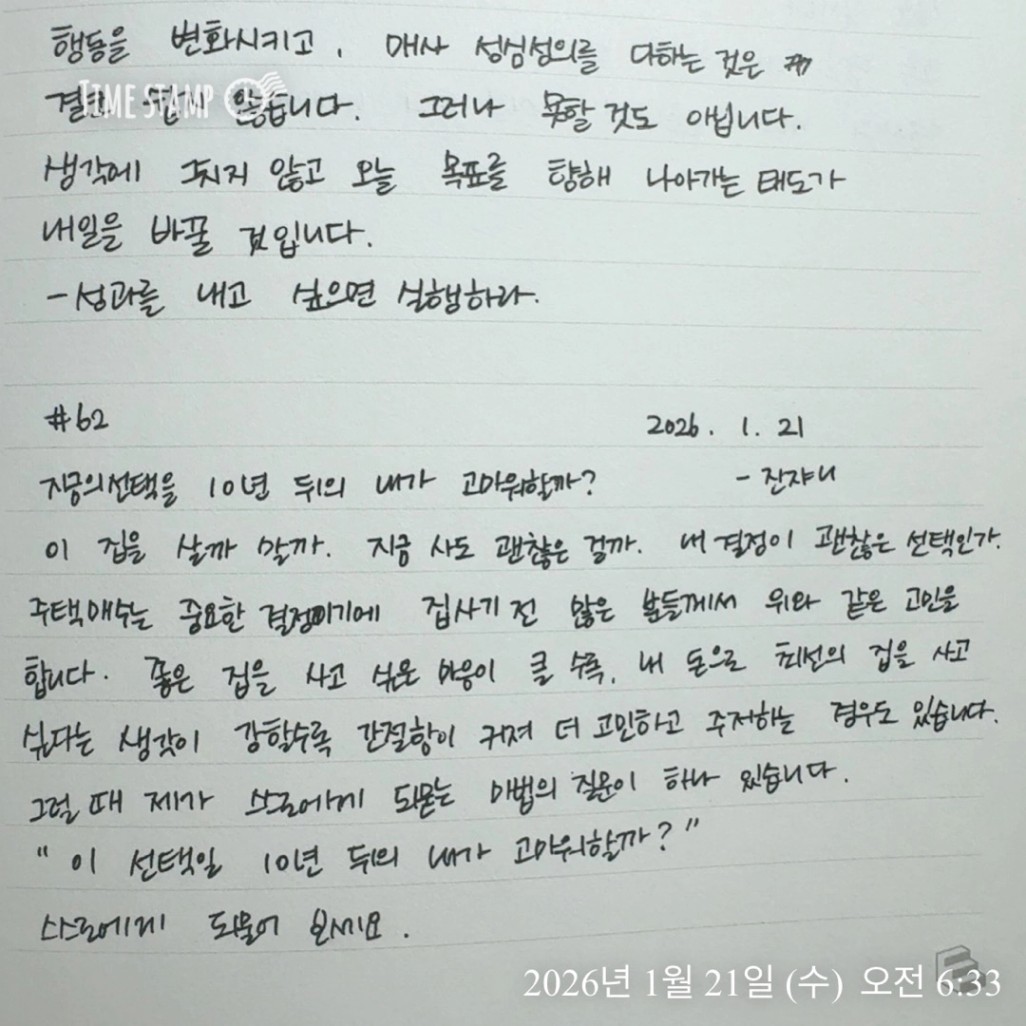 행동을 변화시키고, 매사 성심성의를 다하는 것은
TIME STAMP
결코 쉽지 않습니다. 그러나 못할 것도 아닙니다.
생각에 그치지 않고 오늘 목표를 향해 나아가는 태도가
내일을 바꿀 것입니다.
- 성과를 내고 싶으면 실행하라.
#62 2026. 1. 21
지금의선택을 10년 뒤의 내가 고마워할까? - 잔쟈니
이 집을 살까 말까. 지금 사도 괜찮은 걸까. 내 결정이 괜찮은 선택인가.
주택매수는 중요한 결정이기에 집사기 전 많은 분들께서 위와 같은 고민을
합니다. 좋은 집을 사고 싶은 마음이 클 수록, 내 돈으로 최선의 집을 사고
싶다는 생각이 강할수록 간절함이 커져 더 고민하고 주저하는 경우도 있습니다.
그럴 때 제가 스스로에게 되묻는 마법의 질문이 하나 있습니다.
" 이 선택일 10년 뒤의 내가 고마워할까? "
스스로에게 되물어 보세요.
2026년 1월 21일 (수) 오전 6:33